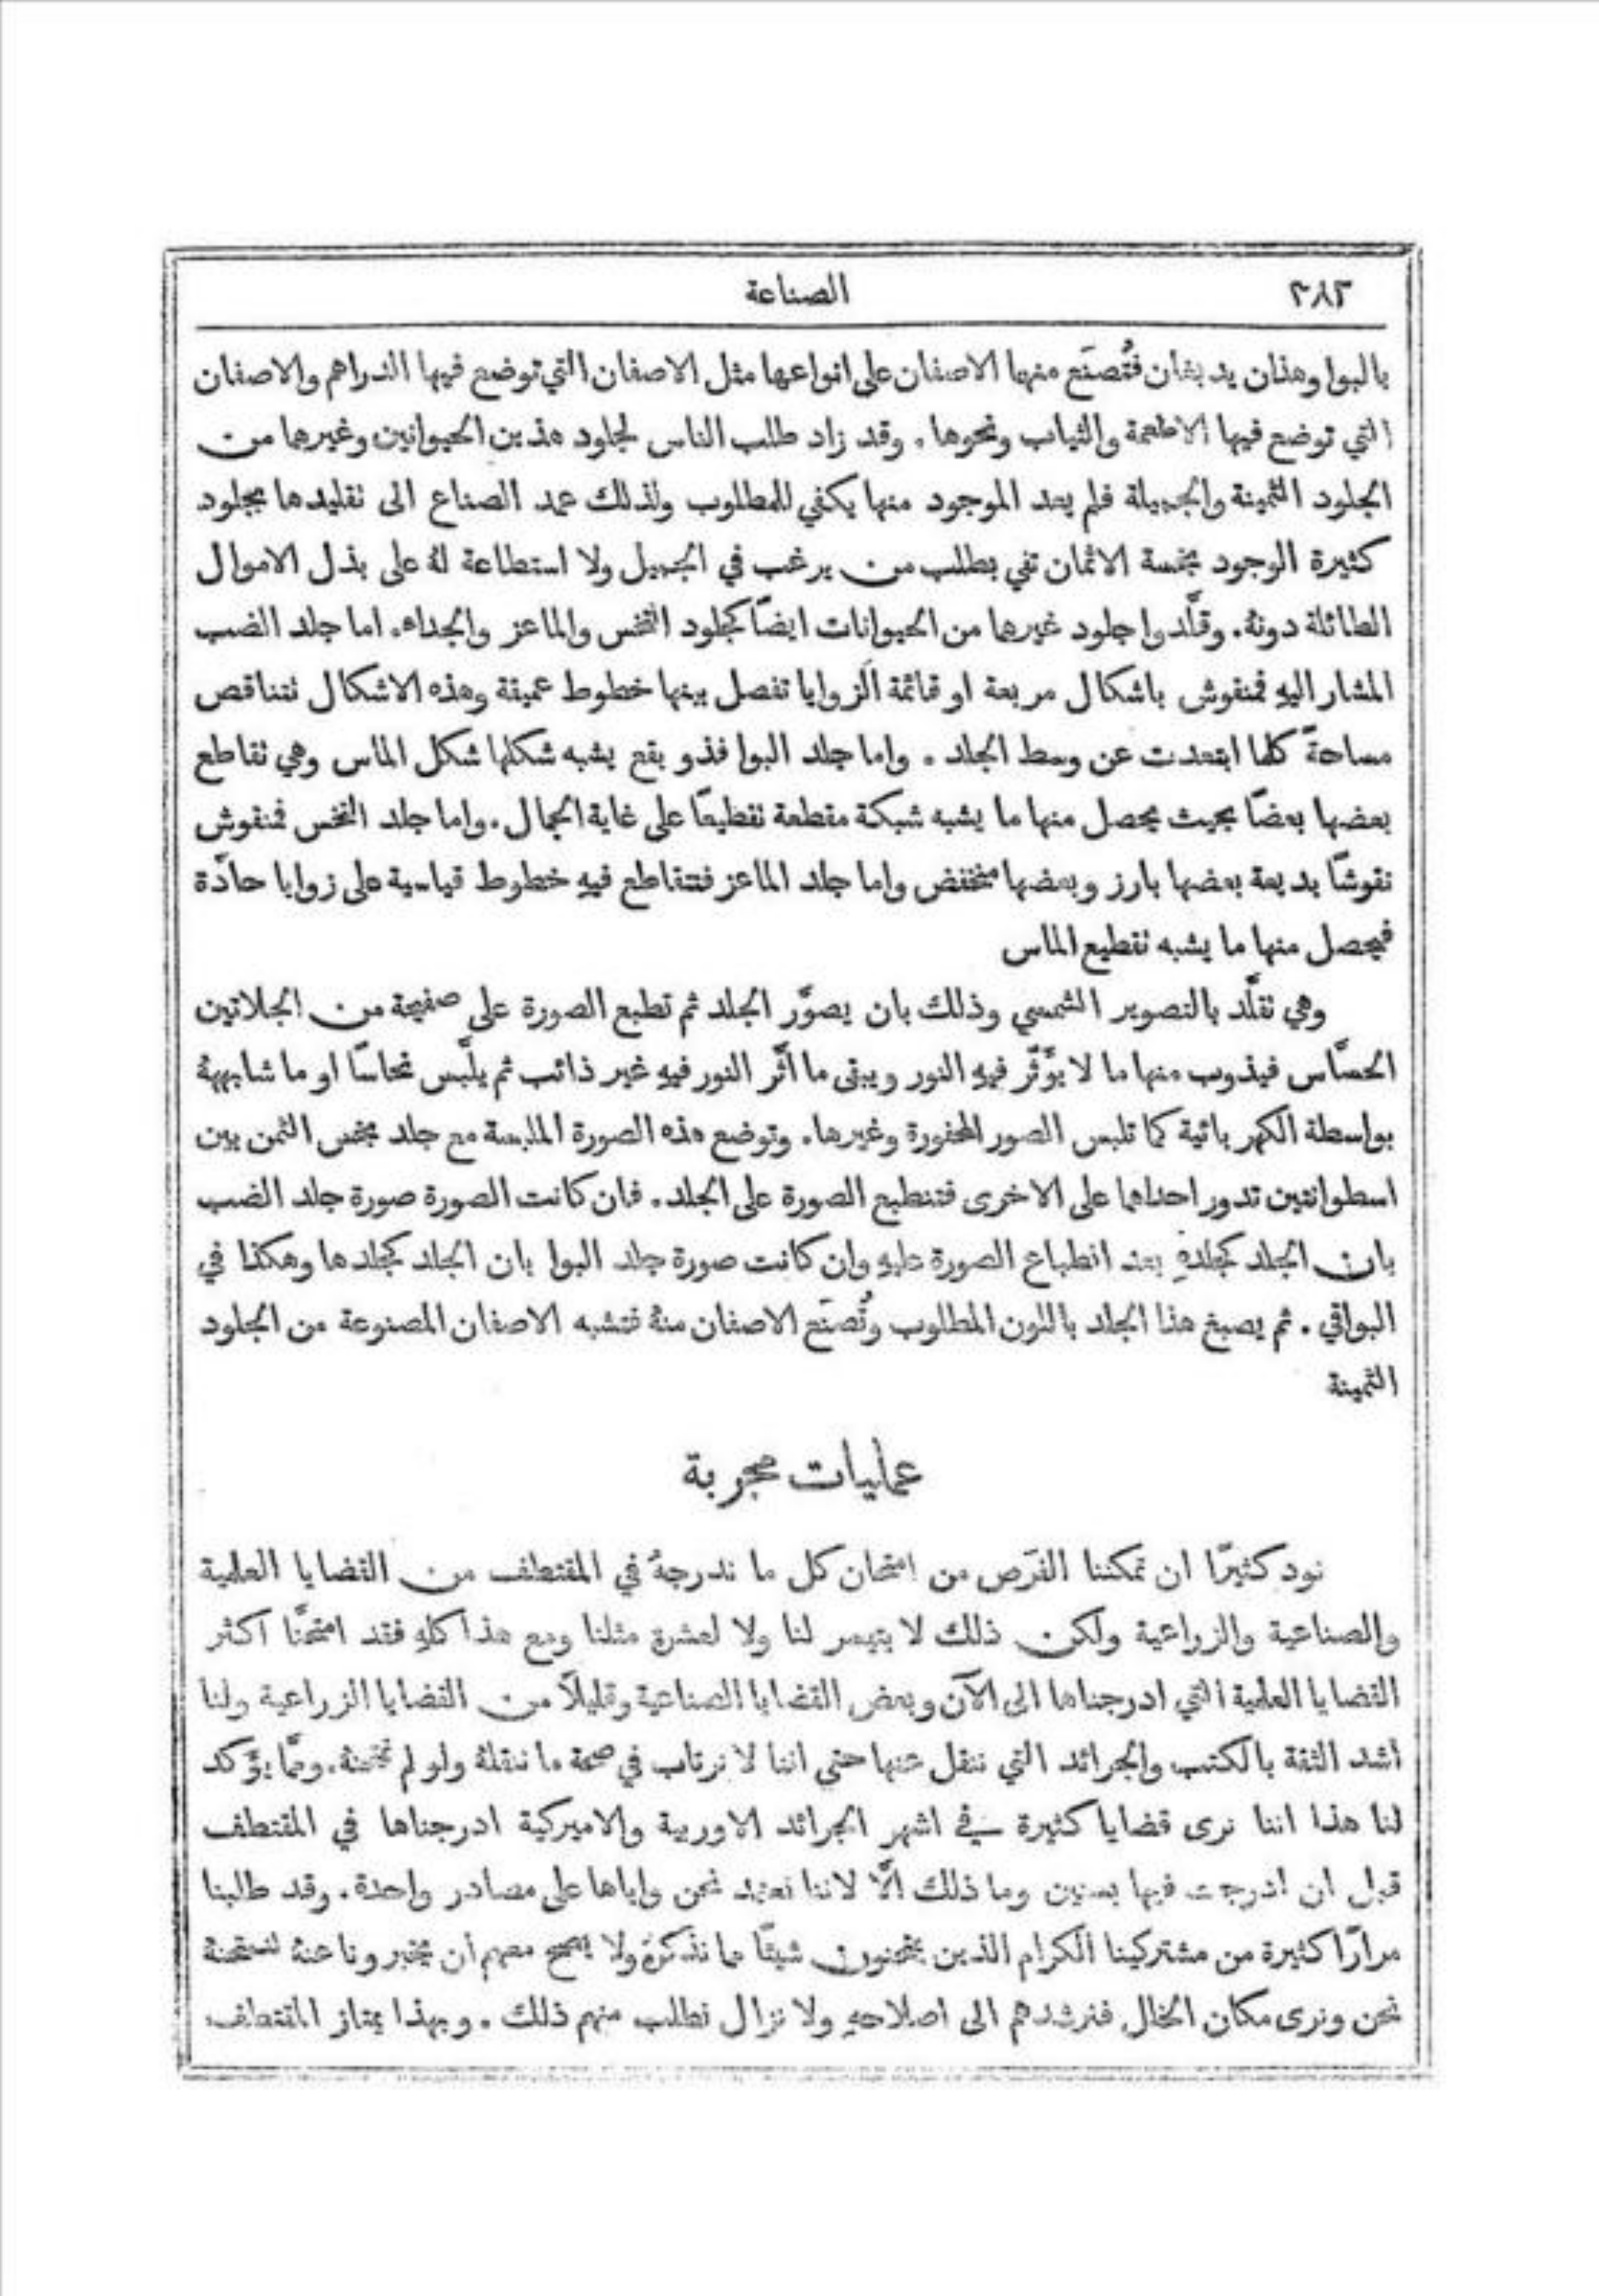 ٣٨٢ الصناعة
بالبوا وهذان يدبغان فتُصنَع منهما الاصفان على انواعها مثل الاصفان التي توضع فيها الدراهم والاصفان
التي توضع فيها الاطعمة والثياب ونحوها. وقد زاد طلب الناس لجلود هذين الحيوانين وغيرها من
الجلود الثمينة والجميلة فلم يعد الموجود منها يكفي للمطلوب ولذلك عمد الصناع الى نقليدها بجلود
كثيرة الوجود بخسة الاثمان تفي بطلب من يرغب في الجميل ولا استطاعة لهُ على بذل الاموال
الطائلة دونهُ. وقلَّدوا جلود غيرها من الحيوانات ايضًا كجلود التخس والماعز والجداه. اما جلد الضب
المشار اليهِ فمنقوش باشكال مربعة او قائمة الزوايا تفصل بينها خطوط عميقة وهذه الاشكال نتناقص
مساحةً كلما ابتعدت عن وسط الجلد. واما جلد البوا فذو بقع يشبه شكلها شكل الماس وهي نقاطع
بعضها بعضًا بحيث يحصل منها ما يشبه شبكة مقطعة نقطيعًا على غاية الجمال. واما جلد التخس فمنقوش
نقوشًا بديعة بعضها بارز وبعضها منخفض واما جلد الماعز فتتقاطع فيهِ خطوط قياسية على زوايا حادَّة
فيحصل منها ما يشبه نقطيع الماس
وهي نقلَّد بالتصوير الشمسي وذلك بان يصوَّر الجلد ثم تطبع الصورة على صفيحة من الجلاتين
الحسَّاس فيذوب منها ما لا يؤَثّر فيهِ النور ويبقى ما اثَّر النور فيهِ غير ذائب ثم يلَّبس نحاسًا او ما شابههُ
بواسطة الكهربائية كما تلبس الصور المحفورة وغيرها. وتوضع هذه الصورة الملبسة مع جلد بخس الثمن بين
اسطوانتين تدور احداهما على الاخرى فتنطبع الصورة على الجلد. فان كانت الصورة صورة جلد الضب
بان الجلد كجلدهِ بعد انطباع الصورة عليهِ وان كانت صورة جلد البوا بان الجلد كجلدها وهكذا في
البواقي. ثم يصبغ هذا الجلد باللون المطلوب وتُصنَع الاصفان منهُ فتشبه الاصفان المصنوعة من الجلود
الثمينة
عمليات مجربة
نود كثيرًا ان تمكننا الفرَص من امتحان كل ما ندرجهُ في المقتطف من القضايا العلمية
والصناعية والزراعية ولكن ذلك لا يتيسر لنا ولا لعشرةٍ مثلنا ومع هذا كلهِ فقد امتحنَّا اكثر
القضايا العلمية التي ادرجناها الى الآن وبعض القضايا الصناعية وقليلاً من القضايا الزراعية ولنا
اشد الثقة بالكتب والجرائد التي ننقل عنها حتى اننا لا نرتاب في صحة ما ننقلهُ ولو لم نمتحنهُ. وممَّا يؤَكد
لنا هذا اننا نرى قضايا كثيرة في اشهر الجرائد الاوربية والاميركية ادرجناها في المقتطف
قبل ان ادرجت فيها بسنين وما ذلك الَّا لاننا نعتمد نحن واياها على مصادر واحدة. وقد طلبنا
مرارًا كثيرة من مشتركينا الكرام الذين يمتحنون شيئًا مما نذكرهُ ولا يصح معهم ان يخبرونا عنهُ لنمتحنهُ
نحن ونرى مكان الخلل فنرشدهم الى اصلاحهِ ولا نزال نطلب منهم ذلك. وبهذا يمتاز المقتطف